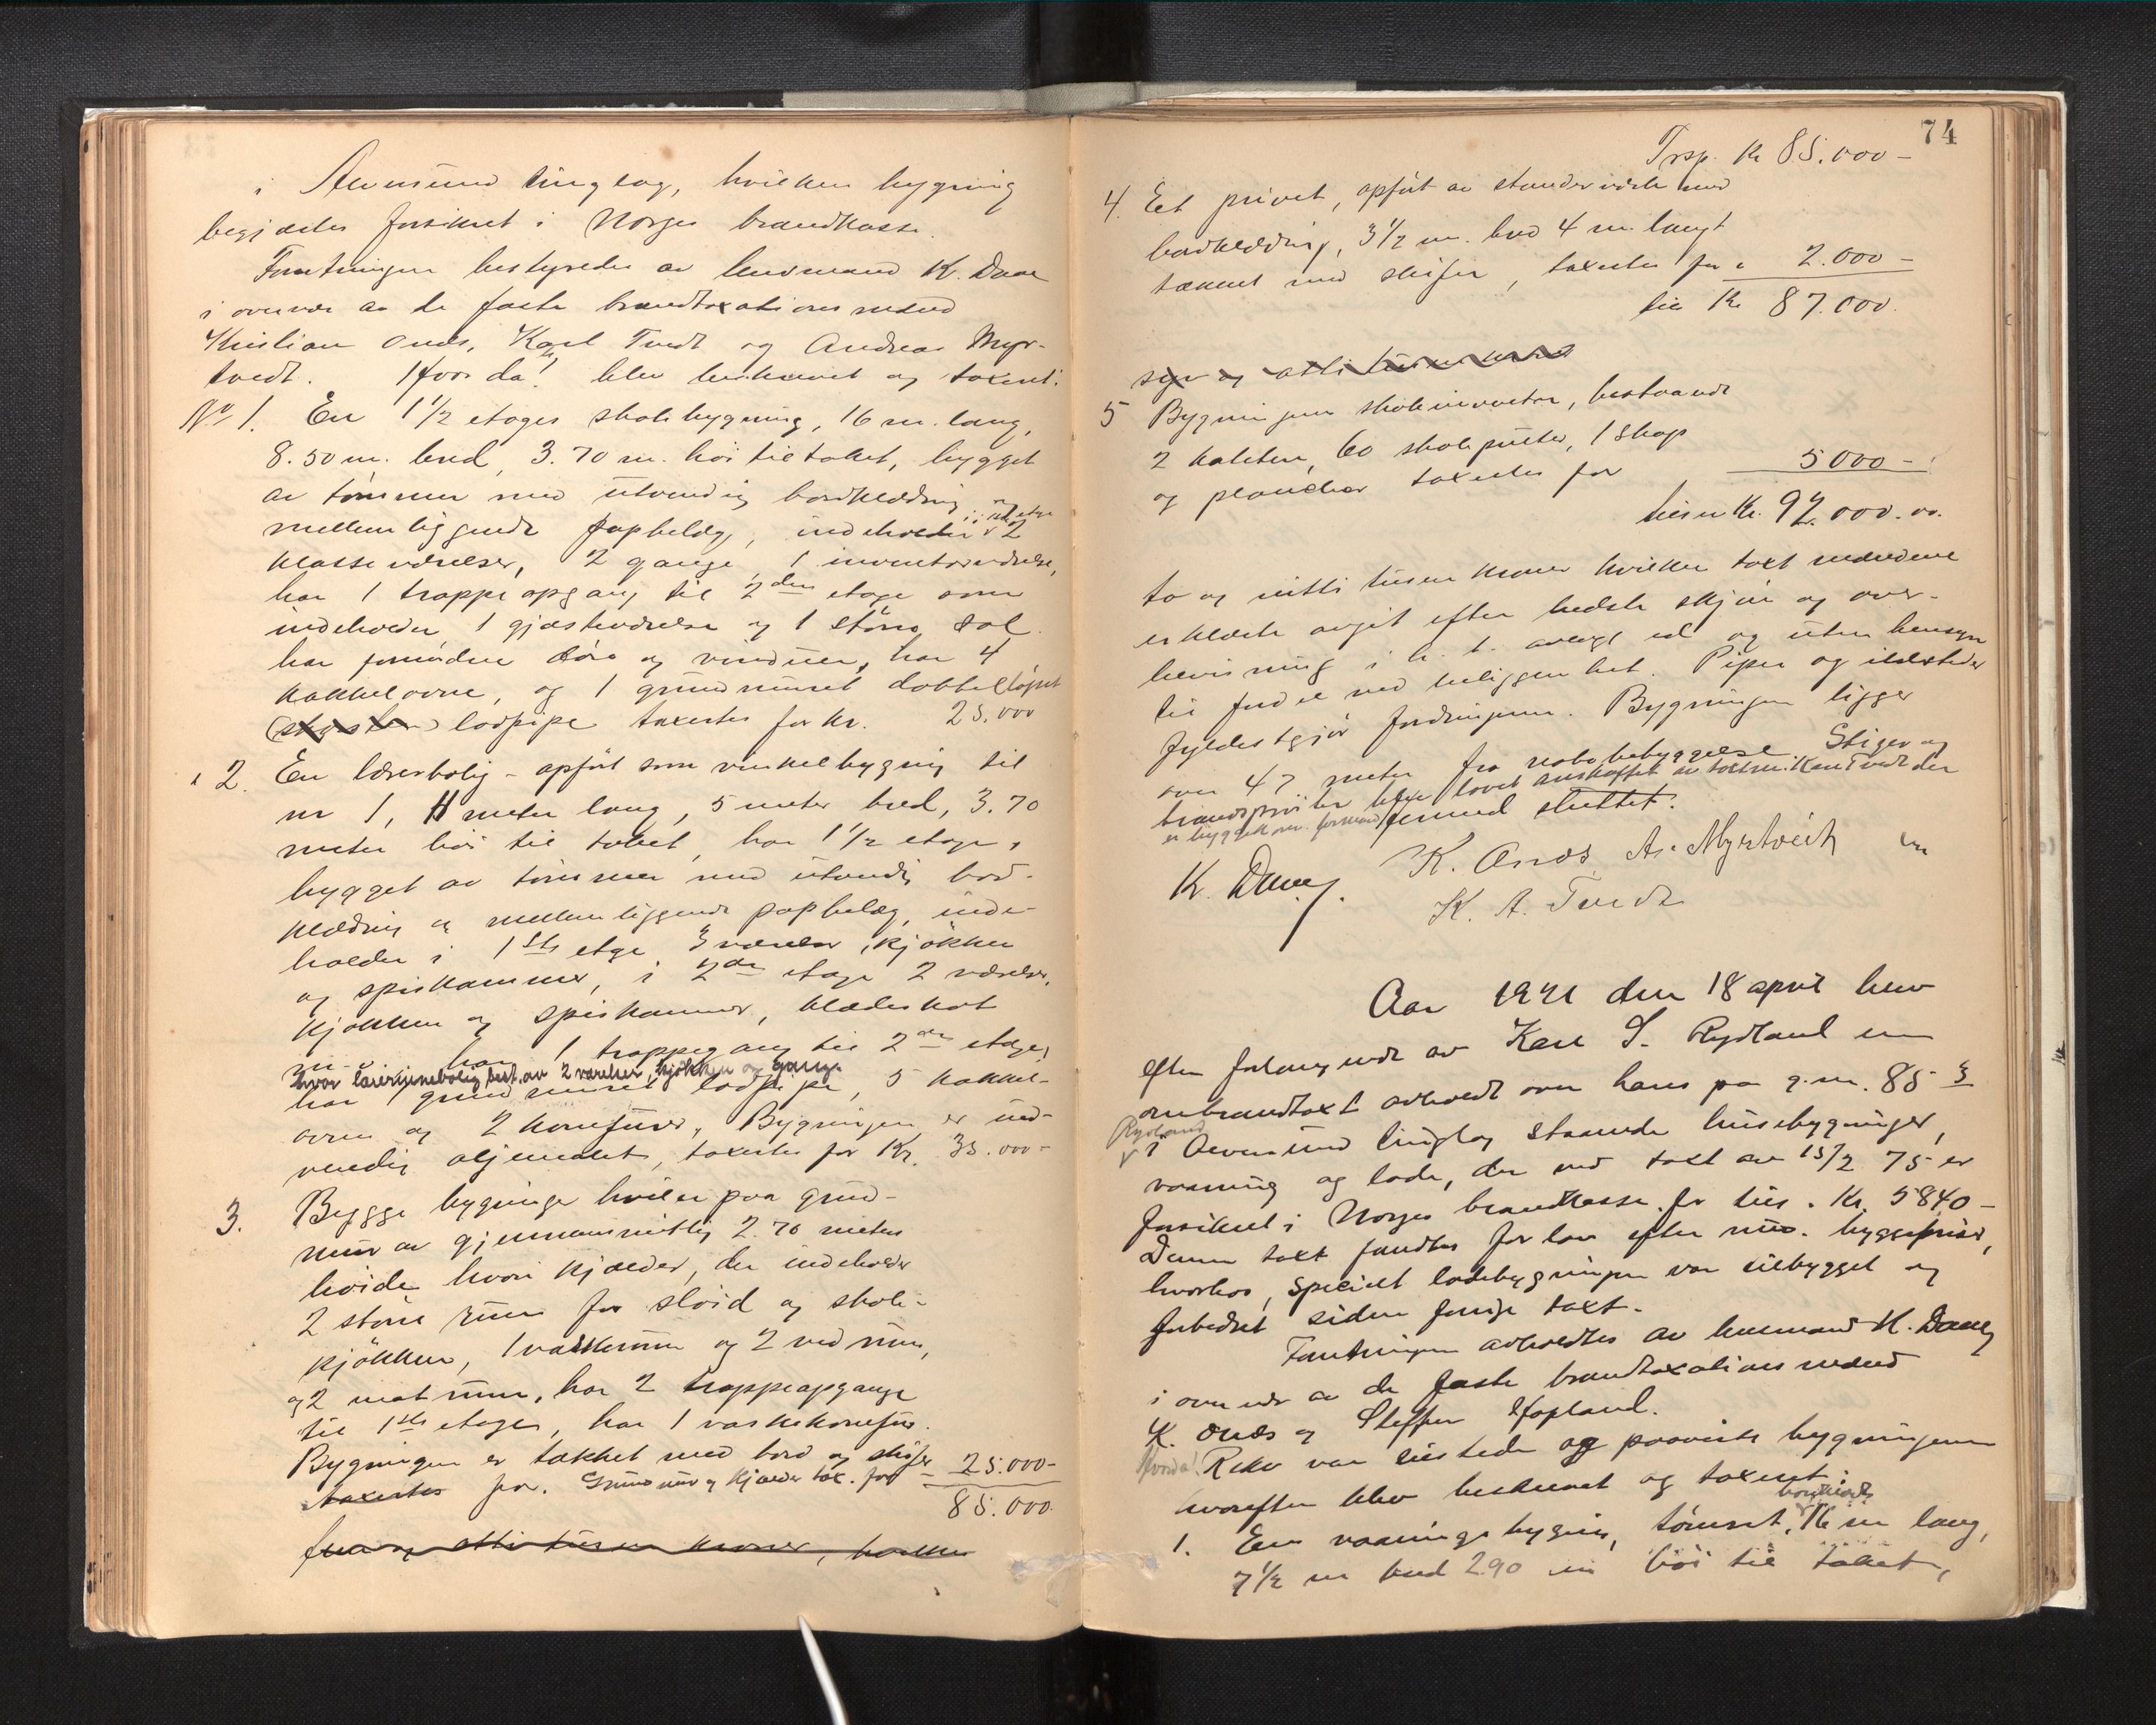 i Alversund tinglag, hvilken bygning
begjæres forsikret i Norges brandkasse.
Forretningen bestyredes av lensmand K. Daae
i overvær av de faste brandtaxationsmænd
Kristian Onæs, Karl Tvedt og Andreas Myr-
tvedt. Hvorda! blev beskrevet og taxert:
No 1. En 1 1/2 etages skolebygning, 16 m. lang,
8.50 m. bred, 3.70 m. höi til taket, bygget
av tömmer med utvendig bordklædning og
mellemliggende papbelæg, indeholder i 1st etge 2
klasseværelser, 2 gange, 1 inventarværelse,
har 1 trappeopgang til 2den etage som
indeholder 1 gjæsteværelse og 1 större sal.
har fornödne döre og vinduer, har 4
kakkelovne, og 1 grundmuret dobbeltlöpet
lodpipe taxertes for kr. 25.000
" 2. En lærerbolig - opfört som vinkelbygning til
nr 1, 11 meter lang, 5 meter bred, 3.70
meter höi til taket, har 1 1/2 etage,
bygget av tömmer med utvendig bord-
klædning og mellemliggende papbelæg, inde-
holder i 1ste etge 3 værelser, kjökken
og spiskammer, i 2den etage 2 værelser,
kjökken og spiskammer, klædeskot
m. har 1 trappegang til 2den etage,
hvor lærerinnebolig best. av 2 værelser, kjøkken og gang.
har 1 grundmuret lodpipe, 5 kakkel-
ovne og 2 komfurer, Bygningen er ind-
vendig oljemalet, taxertes for Kr. 35.000-
3. Begge bygninger hviler paa grund-
mur av gjennemsnitlig 2.70 meters
höide, hvori kjælder, der indeholder
2 större rum for slöid og skole-
kjökken, 1 vaskerum og 2 vedrum,
og 2 matrum, har 2 trappeopgange
til 1ste etage, har 1 vaskekomfur.
Bygningen er takket med bord og skifer
taxertes for. Grundmur og kjælder tax. for - 25.000-
85.000
fem og otti tusen kroner, hvilken
74
Trsp. kr 85.000-
4. Et privet, opfört av stenderverk med
bordklædning, 3 1/2 m. bred 4 m. langt
tækket med skifer, taxertes for " 2.000-
til Kr 87.000.
syv og otti tusen kroner
5 Bygningens skoleinventar, bestaaende
2 kateter, 60 skolepulter, 1 skap
og plancher taxertes for 5000-
tilsm Kr. 92.000.00.
to og nitti tusen kroner hvilken taxt mændene
erklærte avgit efter bedste skjön og over-
bevisning i h. t. avlagt ed og uten hensyn
til fordel ved beliggenhet. Piper og ildsteder
fyldestgjör fordringerne. Bygningen ligger
over 47 meter fra nabobebyggelse. Stiger og
brandspröiter blev lovet anskaffet av taxtm. Karl Tvedt der
er byggekom. formand Hermed sluttet.
Kr. Daae. K. Onæs A. Myrtveit
K. A. Tvedt
Aar 1921 den 18 april blev
efter forlangende av Karl S. Rydland en
ombrandtaxt avholdt over hans paa g.nr. 85 3
Rydland
i Alversund tinglag staaende husebygninger,
vaaning og lade, der ved taxt av 15/2 75 er
forsikret i Norges brandkasse for tils. Kr. 5840-
Denne taxt fandtes for lav efter nuv. byggepriser,
hvorhos, specielt ladebygningen var tilbygget og
forbedret siden forrige taxt.
Forretningen avholdtes av lensmand K. Daae
i overvær av de faste brandtaxationsmænd
K. Onæs og Steffen Hopland.
Hvorda! Rekv var tilstede og paaviste bygningerne
hvorefter blev beskrevet og taxert:
1. En vaaningsbygning, tömret, bordklædt, 16 m lang,
7 1/2 m bred 2.90 m höi til taket,